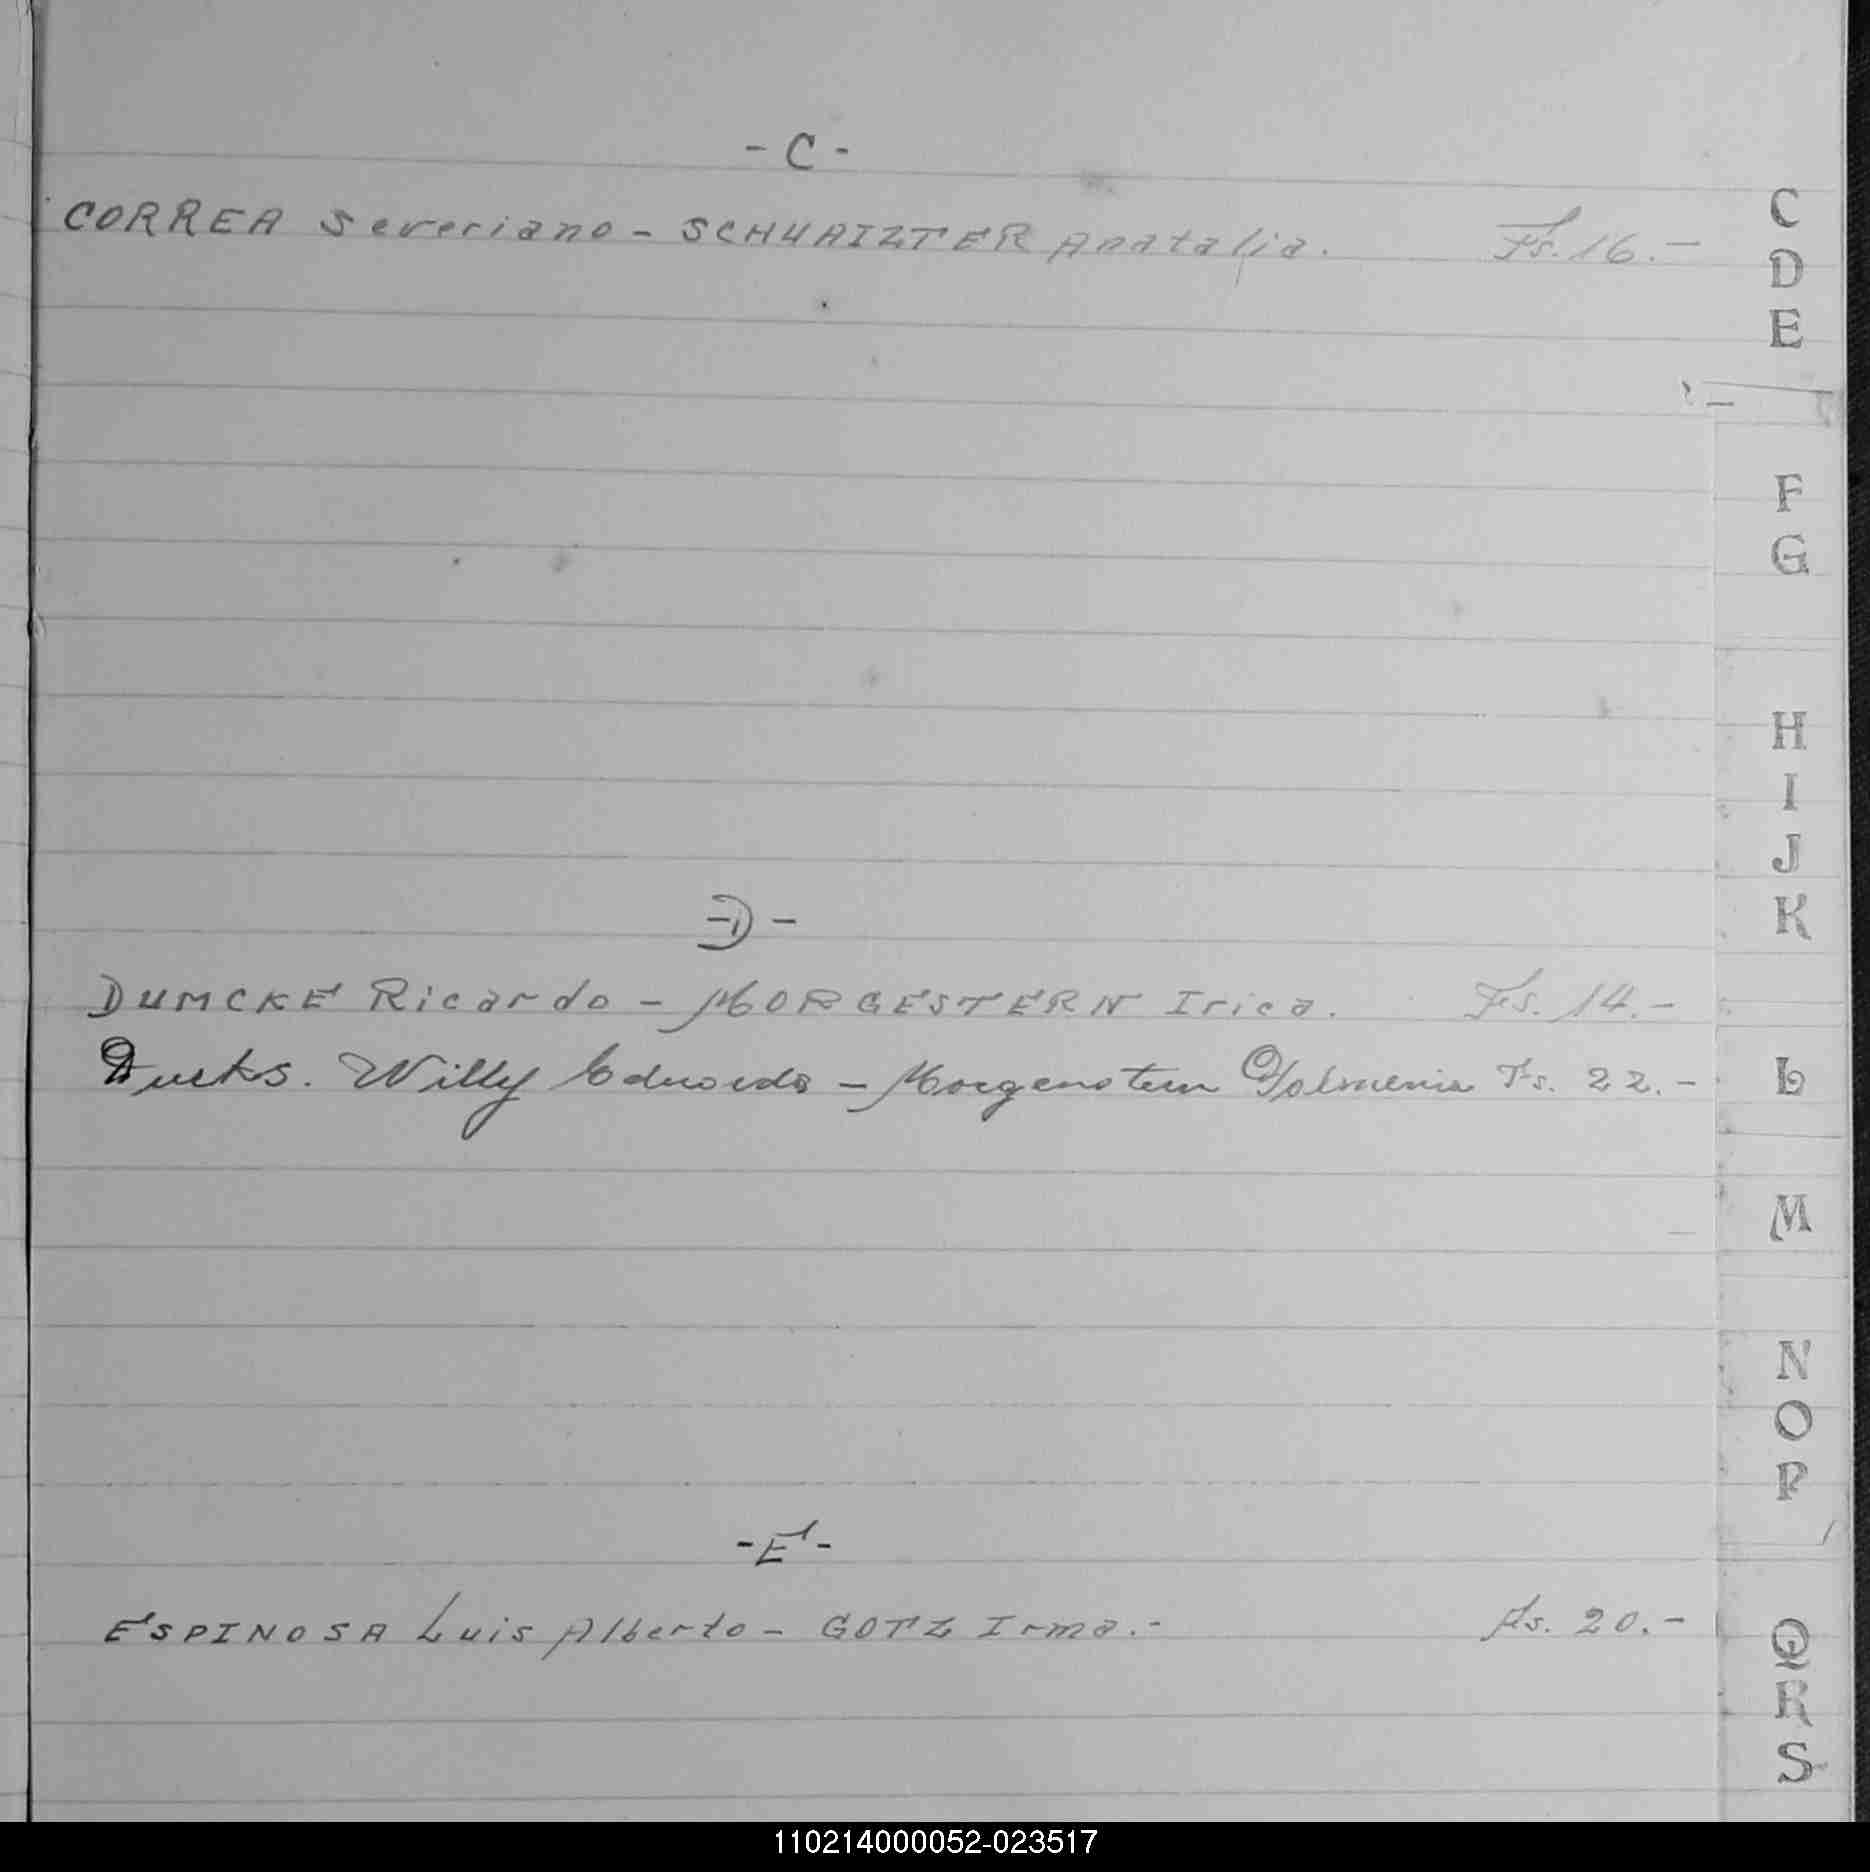 - C -
CORREA Severiano - SCHUAIZTER Anatalia. Fs. 16.-
- D -
DUMCKE Ricardo - MORGESTERN Irica. Fs. 14.-
Willy Eduardo - Morgenstern Fs. 22.-
- E -
ESPINOSA Luis Alberto - GOTZ Irma.- Fs. 20.-
C
D
E
F
G
H
I
J
K
L
M
N
O
P
Q
R
S
110214000052-023517